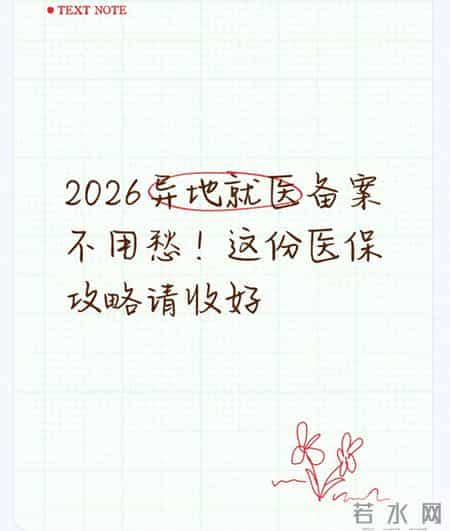 TEXT NOTE
2026异地就医备案
不用愁！这份医保
攻略请收好
若水网